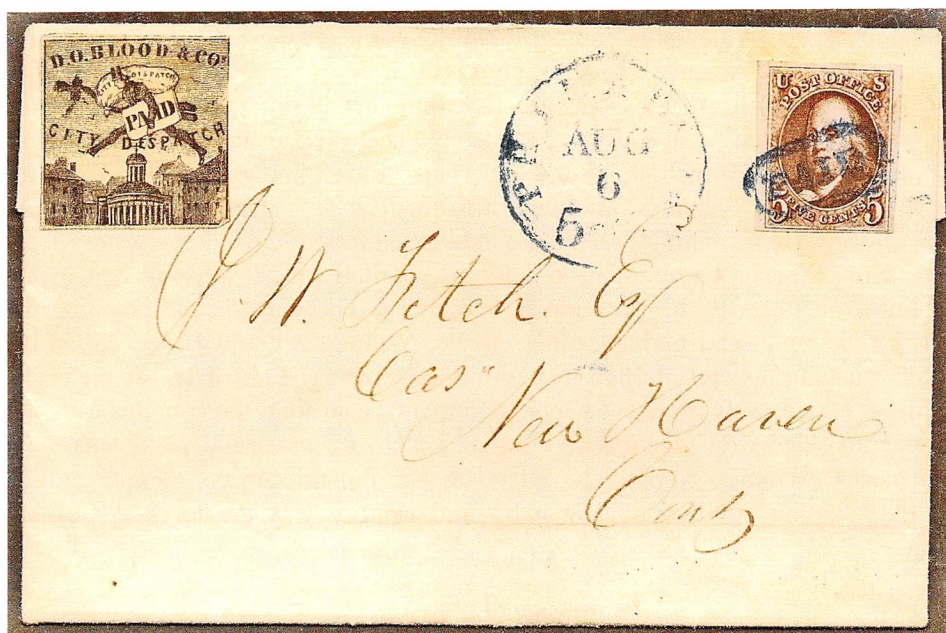 D.O. BLOOD & CO'S
CITY DISPATCH
PAID
CITY DESPATCH
PHILADA
AUG
6
5
U S
POST OFFICE
5 FIVE CENTS 5
J. W. Fitch. Esq
Cas"
New Haven
Conn